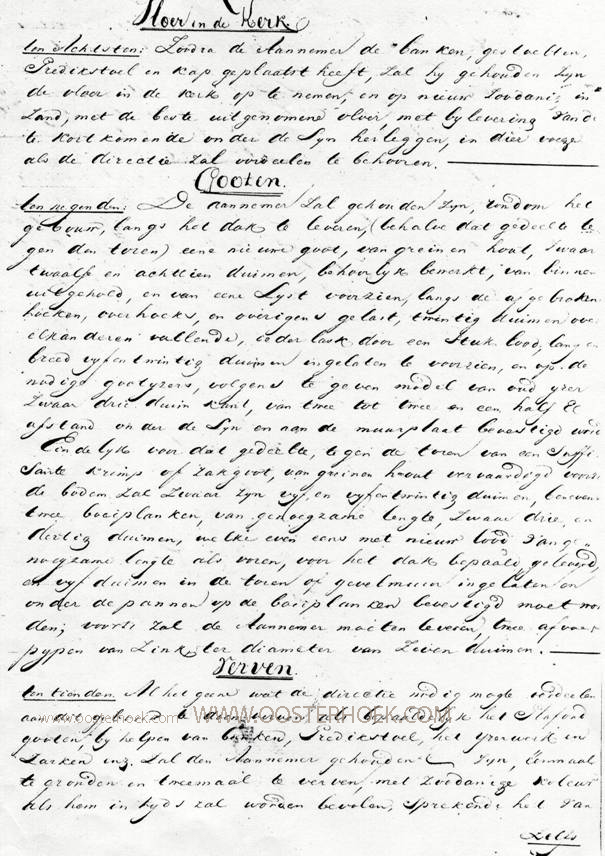 Vloer in de Kerk.
ten Achtsten: Zoodra de Aannemer de banken, gestoelten,
Predikstoel en kap geplaatst heeft, zal hy gehouden zyn
de vloer in de kerk op te nemen, en op nieuw Zoodanig in
Zand, met de beste uitgenomene vloer, met bylevering van de
te kort komende onder de Lyn herleggen, in dier voege
als de directie zal oordeelen te behooren.
Gooten.
ten negenden: De aannemer zal gehouden zyn, rondom het
gebouw, langs het dak te leveren, (behalve dat gedeelte te-
gen den toren) eene nieuwe goot, van greinen hout, zwaar
twaalf en achttien duimen, behoorlyk bewerkt, van binnen
uitgehold, en van eene Lyst voorzien, langs de afgebroken
hoeken, overhoeks, en overigens gelast, twintig duimen over
elkanderen vallende, ieder lask door een Stuk lood, lang en
breed vyfentwintig duimen ingelaten te voorzien, en op de
nodige gootyzers, volgens te geven model van oud yzer
zwaar drie duim kant, van twee tot twee en een half El
afstand onder de Lyn en aan de muurplaat bevestigd
Eindelyk voor dat gedeelte, tegen de toren van een
krimp of zakgoot, van greinen hout vervaardigd
de bodem zal zwaar zyn vyf en vyfentwintig duimen, benevens
twee boeiplanken, van genoegzame lengte, zwaar drie en
dertig duimen, welke even eens met nieuw lood van ge-
noegzame lengte als voren, voor het dak bepaald, gelevert,
en vyf duimen in de toren of gevelmuur ingelaten en
onder de pannen op de boeiplanken bevestigd moet wor
den; voorts zal de Aannemer moeten leveren, twee afvoer
pypen van Zink, ter diameter van Zeven duimen.
Verven.
ten tienden. Al het geene wat de directie nodig mogte oordeelen
aan de gebouw het Plafond
gooten, by helpen van banken, Predikstoel, het yzerwerk en
Zarken enz. zal den Aannemer gehouden zyn, Eenmaal
te gronden en tweemaal te verven, met Zoodanige koleur
als hem in tyds zal worden bevolen, sprekende het van
Zelfs
www.oosterhoek.com
WWW.OOSTERHOEK.COM
www.oosterhoek.com